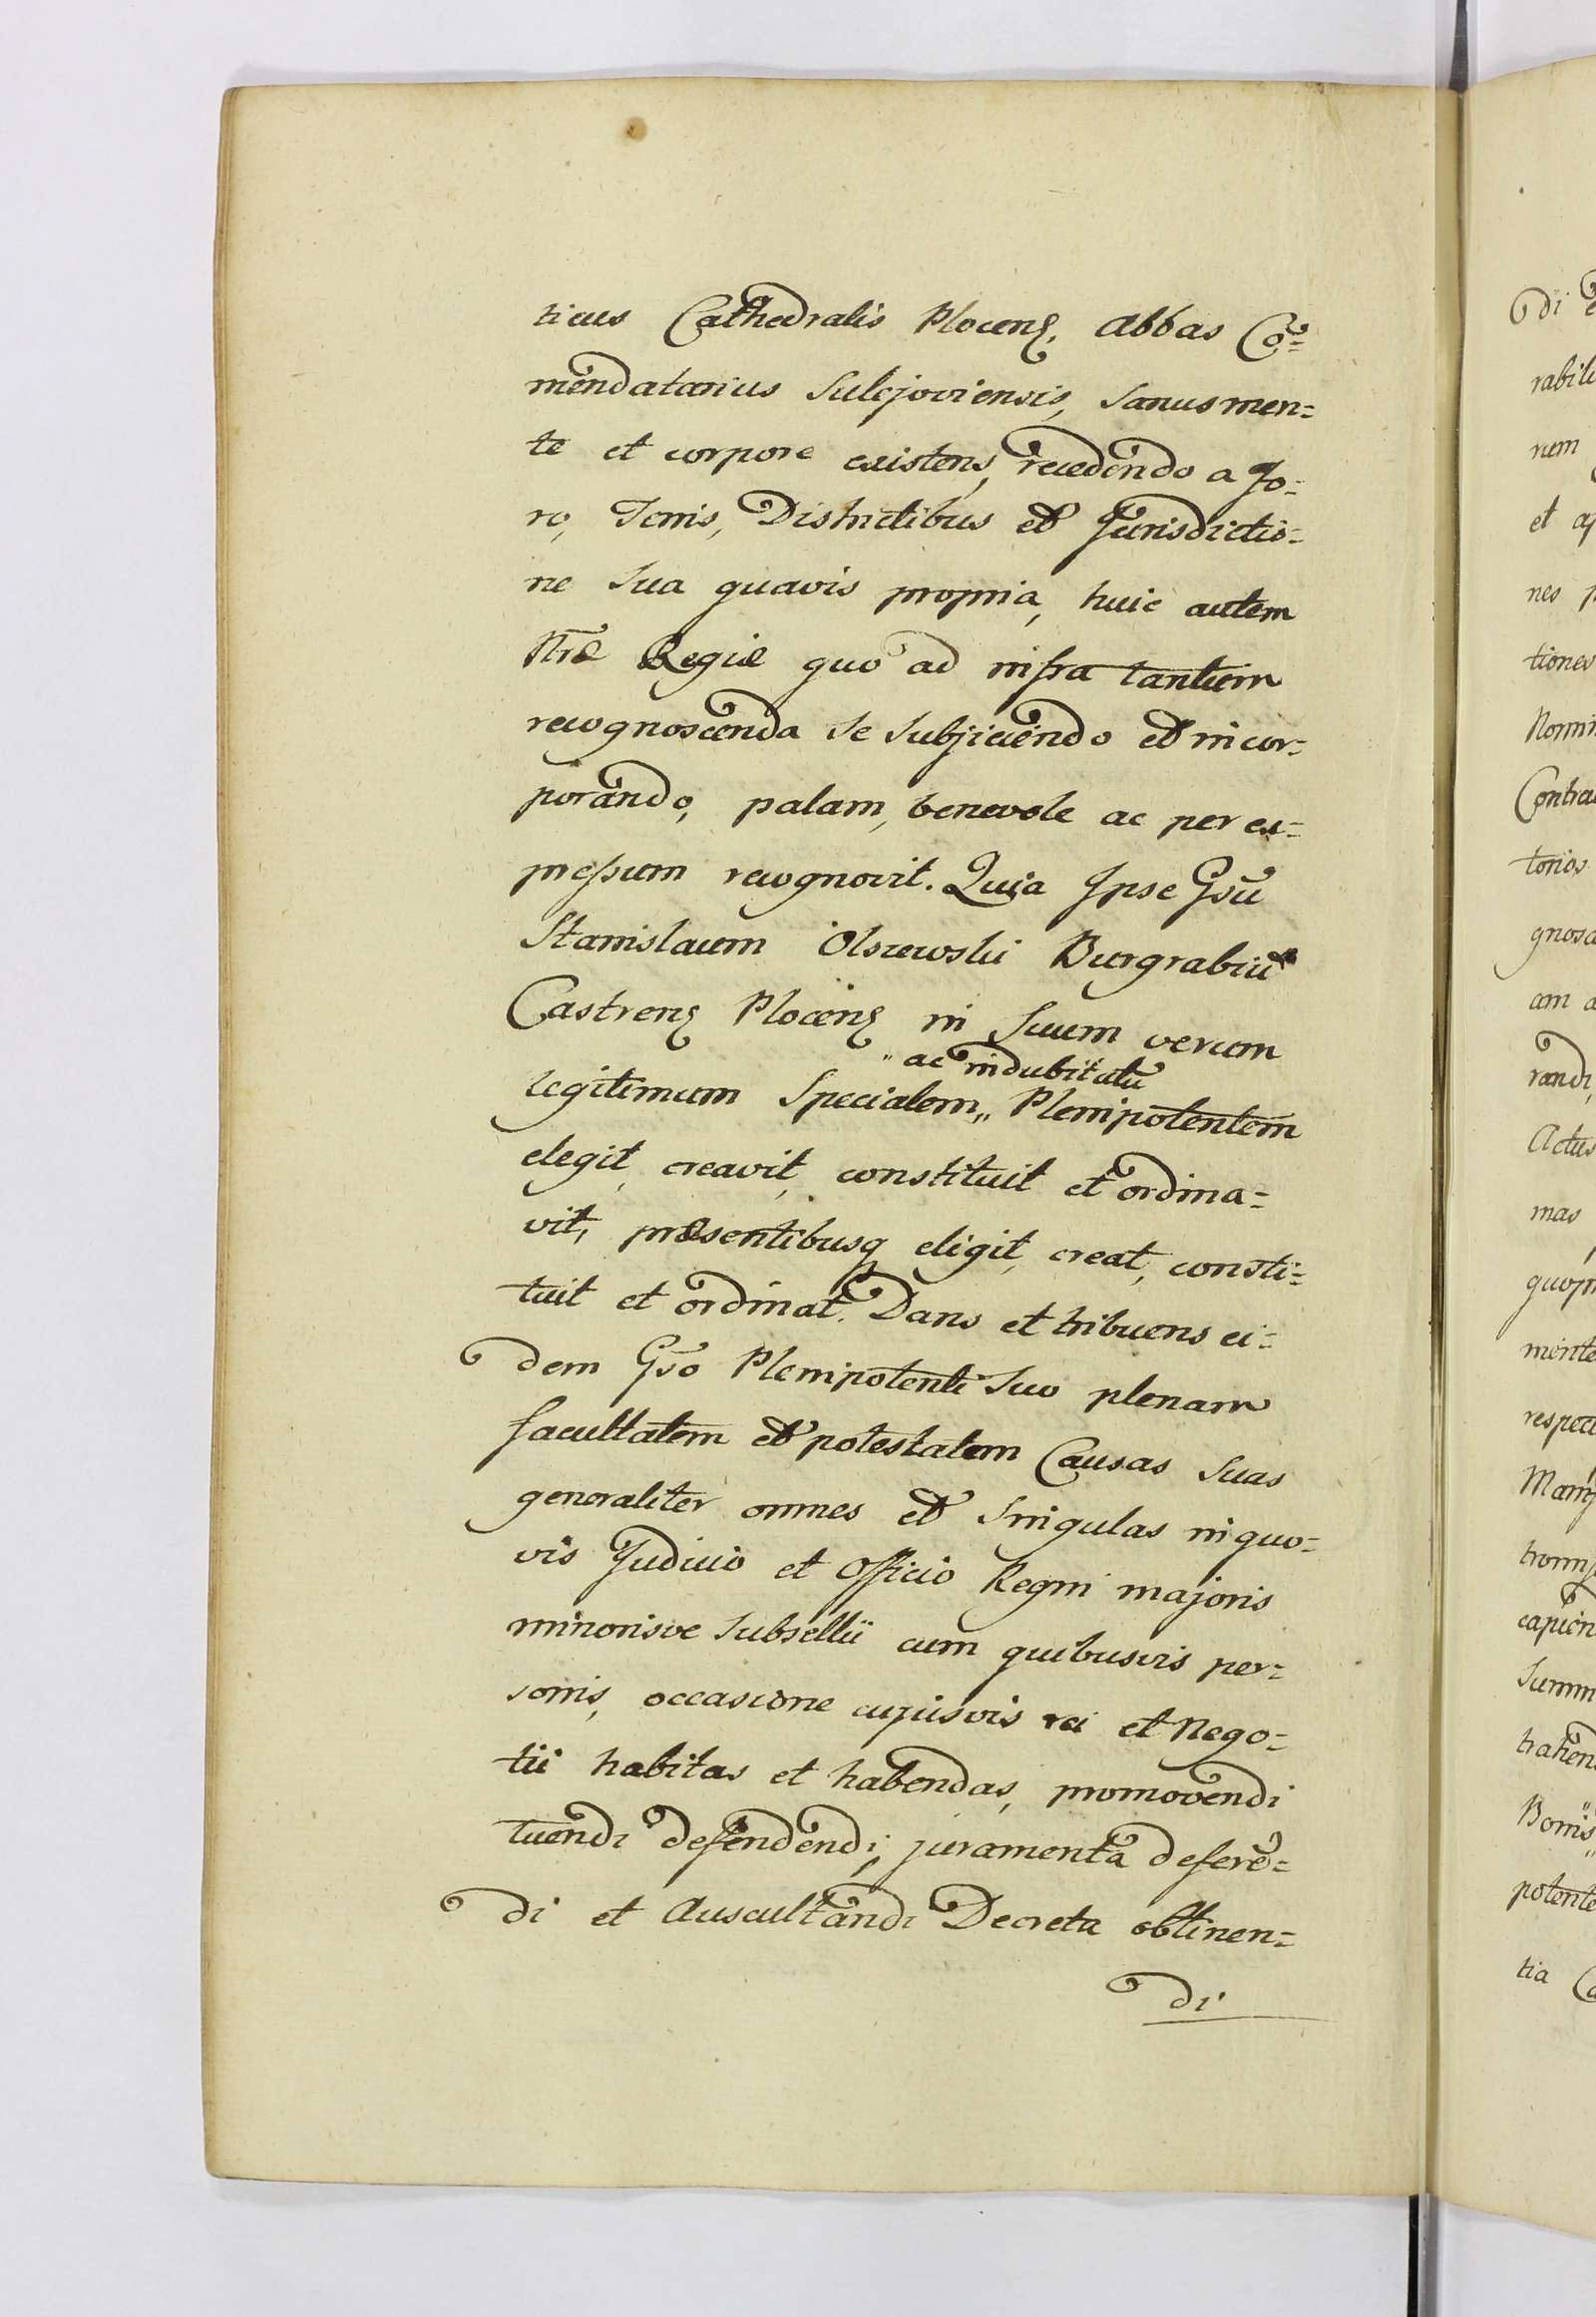 ticus Cathedralis Plocens. Abbas Co=
mendatarius Sulejoviensis, Sanus men=
te et corpore existens, recedendo a Fo=
ro, Terris, Districtibus et Jurisdictio=
ne Sua quavis propria, huic autem
Nræ Regiæ quo ad infra tantum
recognoscenda se subjiciendo et incor=
porando, palam, benevole ac per ex=
pressum recognovit. Quia Ipse Gsũ
Stanislaum Olszewski Burgrabiũ
Castrens Plocens in Suum verum
" ac indubitatũ
legitimum Specialem „ Plenipotentem
elegit, creavit, constituit et ordina=
vit, præsentibusq eligit, creat, consti=
tuit et ordinat. Dans et tribuens ei=
dem Gso Plenipotenti Suo plenam
facultatem et potestatem Causas Suas
generaliter omnes et Singulas in quo=
vis Judicio et Officio Regni majoris
minorisve Subsellii cum quibusvis per=
sonis, occasione cujusvis rei et Nego=
tii habitas et habendas, promovendi
tuendi defendendi, juramenta deferẽ=
di et Auscultandi Decreta obtinen=
di
di
rabili
rum
et
nes
tiones
Contra
torios
gnosc
randi,
Actus
mas
respect
capien
Summ
trahen
Bonis
potente
tia